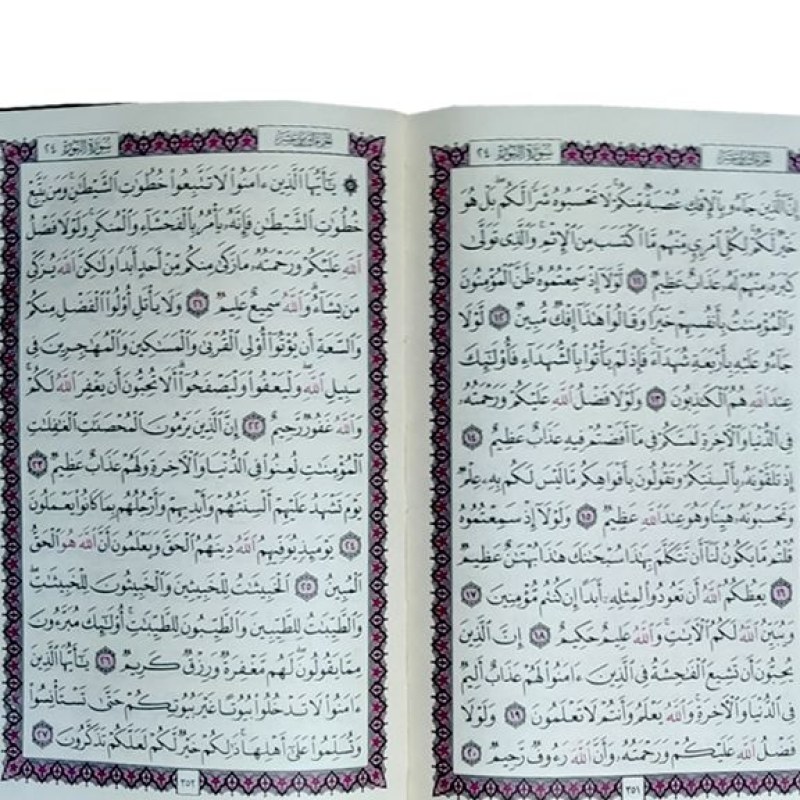 الجزء الثامن عشر
سورة النور ٢٤
إِنَّ ٱلَّذِينَ جَآءُو بِٱلْإِفْكِ عُصْبَةٌ مِّنكُمْ لَا تَحْسَبُوهُ شَرًّا لَّكُم بَلْ هُوَ
خَيْرٌ لَّكُمْ لِكُلِّ ٱمْرِئٍ مِّنْهُم مَّا ٱكْتَسَبَ مِنَ ٱلْإِثْمِ وَٱلَّذِى تَوَلَّىٰ
كِبْرَهُۥ مِنْهُمْ لَهُۥ عَذَابٌ عَظِيمٌ ١١ لَّوْلَآ إِذْ سَمِعْتُمُوهُ ظَنَّ ٱلْمُؤْمِنُونَ
وَٱلْمُؤْمِنَٰتُ بِأَنفُسِهِمْ خَيْرًا وَقَالُوا۟ هَٰذَآ إِفْكٌ مُّبِينٌ ١٢ لَّوْلَا
جَآءُو عَلَيْهِ بِأَرْبَعَةِ شُهَدَآءَ فَإِذْ لَمْ يَأْتُوا۟ بِٱلشُّهَدَآءِ فَأُو۟لَٰٓئِكَ
عِندَ ٱللَّهِ هُمُ ٱلْكَٰذِبُونَ ١٣ وَلَوْلَا فَضْلُ ٱللَّهِ عَلَيْكُمْ وَرَحْمَتُهُۥ
فِى ٱلدُّنْيَا وَٱلْءَاخِرَةِ لَمَسَّكُمْ فِى مَآ أَفَضْتُمْ فِيهِ عَذَابٌ عَظِيمٌ ١٤
إِذْ تَلَقَّوْنَهُۥ بِأَلْسِنَتِكُمْ وَتَقُولُونَ بِأَفْوَاهِكُم مَّا لَيْسَ لَكُم بِهِۦ عِلْمٌ
وَتَحْسَبُونَهُۥ هَيِّنًا وَهُوَ عِندَ ٱللَّهِ عَظِيمٌ ١٥ وَلَوْلَآ إِذْ سَمِعْتُمُوهُ
قُلْتُم مَّا يَكُونُ لَنَآ أَن نَّتَكَلَّمَ بِهَٰذَا سُبْحَٰنَكَ هَٰذَا بُهْتَٰنٌ عَظِيمٌ
١٦ يَعِظُكُمُ ٱللَّهُ أَن تَعُودُوا۟ لِمِثْلِهِۦٓ أَبَدًا إِن كُنتُم مُّؤْمِنِينَ ١٧
وَيُبَيِّنُ ٱللَّهُ لَكُمُ ٱلْءَايَٰتِ وَٱللَّهُ عَلِيمٌ حَكِيمٌ ١٨ إِنَّ ٱلَّذِينَ
يُحِبُّونَ أَن تَشِيعَ ٱلْفَٰحِشَةُ فِى ٱلَّذِينَ ءَامَنُوا۟ لَهُمْ عَذَابٌ أَلِيمٌ
فِى ٱلدُّنْيَا وَٱلْءَاخِرَةِ وَٱللَّهُ يَعْلَمُ وَأَنتُمْ لَا تَعْلَمُونَ ١٩ وَلَوْلَا
فَضْلُ ٱللَّهِ عَلَيْكُمْ وَرَحْمَتُهُۥ وَأَنَّ ٱللَّهَ رَءُوفٌ رَّحِيمٌ ٢٠
٣٥١
الجزء الثامن عشر
سورة النور ٢٤
۞ يَٰٓأَيُّهَا ٱلَّذِينَ ءَامَنُوا۟ لَا تَتَّبِعُوا۟ خُطُوَٰتِ ٱلشَّيْطَٰنِ وَمَن يَتَّبِعْ
خُطُوَٰتِ ٱلشَّيْطَٰنِ فَإِنَّهُۥ يَأْمُرُ بِٱلْفَحْشَآءِ وَٱلْمُنكَرِ وَلَوْلَا فَضْلُ
ٱللَّهِ عَلَيْكُمْ وَرَحْمَتُهُۥ مَا زَكَىٰ مِنكُم مِّنْ أَحَدٍ أَبَدًا وَلَٰكِنَّ ٱللَّهَ يُزَكِّى
مَن يَشَآءُ وَٱللَّهُ سَمِيعٌ عَلِيمٌ ٢١ وَلَا يَأْتَلِ أُو۟لُوا۟ ٱلْفَضْلِ مِنكُمْ
وَٱلسَّعَةِ أَن يُؤْتُوٓا۟ أُو۟لِى ٱلْقُرْبَىٰ وَٱلْمَسَٰكِينَ وَٱلْمُهَٰجِرِينَ فِى
سَبِيلِ ٱللَّهِ وَلْيَعْفُوا۟ وَلْيَصْفَحُوٓا۟ أَلَا تُحِبُّونَ أَن يَغْفِرَ ٱللَّهُ لَكُمْ
وَٱللَّهُ غَفُورٌ رَّحِيمٌ ٢٢ إِنَّ ٱلَّذِينَ يَرْمُونَ ٱلْمُحْصَنَٰتِ ٱلْغَٰفِلَٰتِ
ٱلْمُؤْمِنَٰتِ لُعِنُوا۟ فِى ٱلدُّنْيَا وَٱلْءَاخِرَةِ وَلَهُمْ عَذَابٌ عَظِيمٌ ٢٣
يَوْمَ تَشْهَدُ عَلَيْهِمْ أَلْسِنَتُهُمْ وَأَيْدِيهِمْ وَأَرْجُلُهُم بِمَا كَانُوا۟ يَعْمَلُونَ
٢٤ يَوْمَئِذٍ يُوَفِّيهِمُ ٱللَّهُ دِينَهُمُ ٱلْحَقَّ وَيَعْلَمُونَ أَنَّ ٱللَّهَ هُوَ ٱلْحَقُّ
ٱلْمُبِينُ ٢٥ ٱلْخَبِيثَٰتُ لِلْخَبِيثِينَ وَٱلْخَبِيثُونَ لِلْخَبِيثَٰتِ
وَٱلطَّيِّبَٰتُ لِلطَّيِّبِينَ وَٱلطَّيِّبُونَ لِلطَّيِّبَٰتِ أُو۟لَٰٓئِكَ مُبَرَّءُونَ
مِمَّا يَقُولُونَ لَهُم مَّغْفِرَةٌ وَرِزْقٌ كَرِيمٌ ٢٦ يَٰٓأَيُّهَا ٱلَّذِينَ
ءَامَنُوا۟ لَا تَدْخُلُوا۟ بُيُوتًا غَيْرَ بُيُوتِكُمْ حَتَّىٰ تَسْتَأْنِسُوا۟
وَتُسَلِّمُوا۟ عَلَىٰٓ أَهْلِهَا ذَٰلِكُمْ خَيْرٌ لَّكُمْ لَعَلَّكُمْ تَذَكَّرُونَ ٢٧
٣٥٢